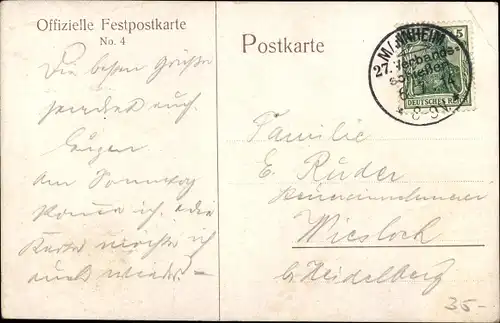 Offizielle Festpostkarte
No. 4
Die besten Grüße
sendet euch
Eugen
Am Sonntag
komme ich. die
Karte möchte ich
auch wieder
Postkarte
MANNHEIM
27. Verbands-
schiessen
5
DEUTSCHES REICH
Familie
E. Rüder
Wiesloch
b/Heidelberg
35-